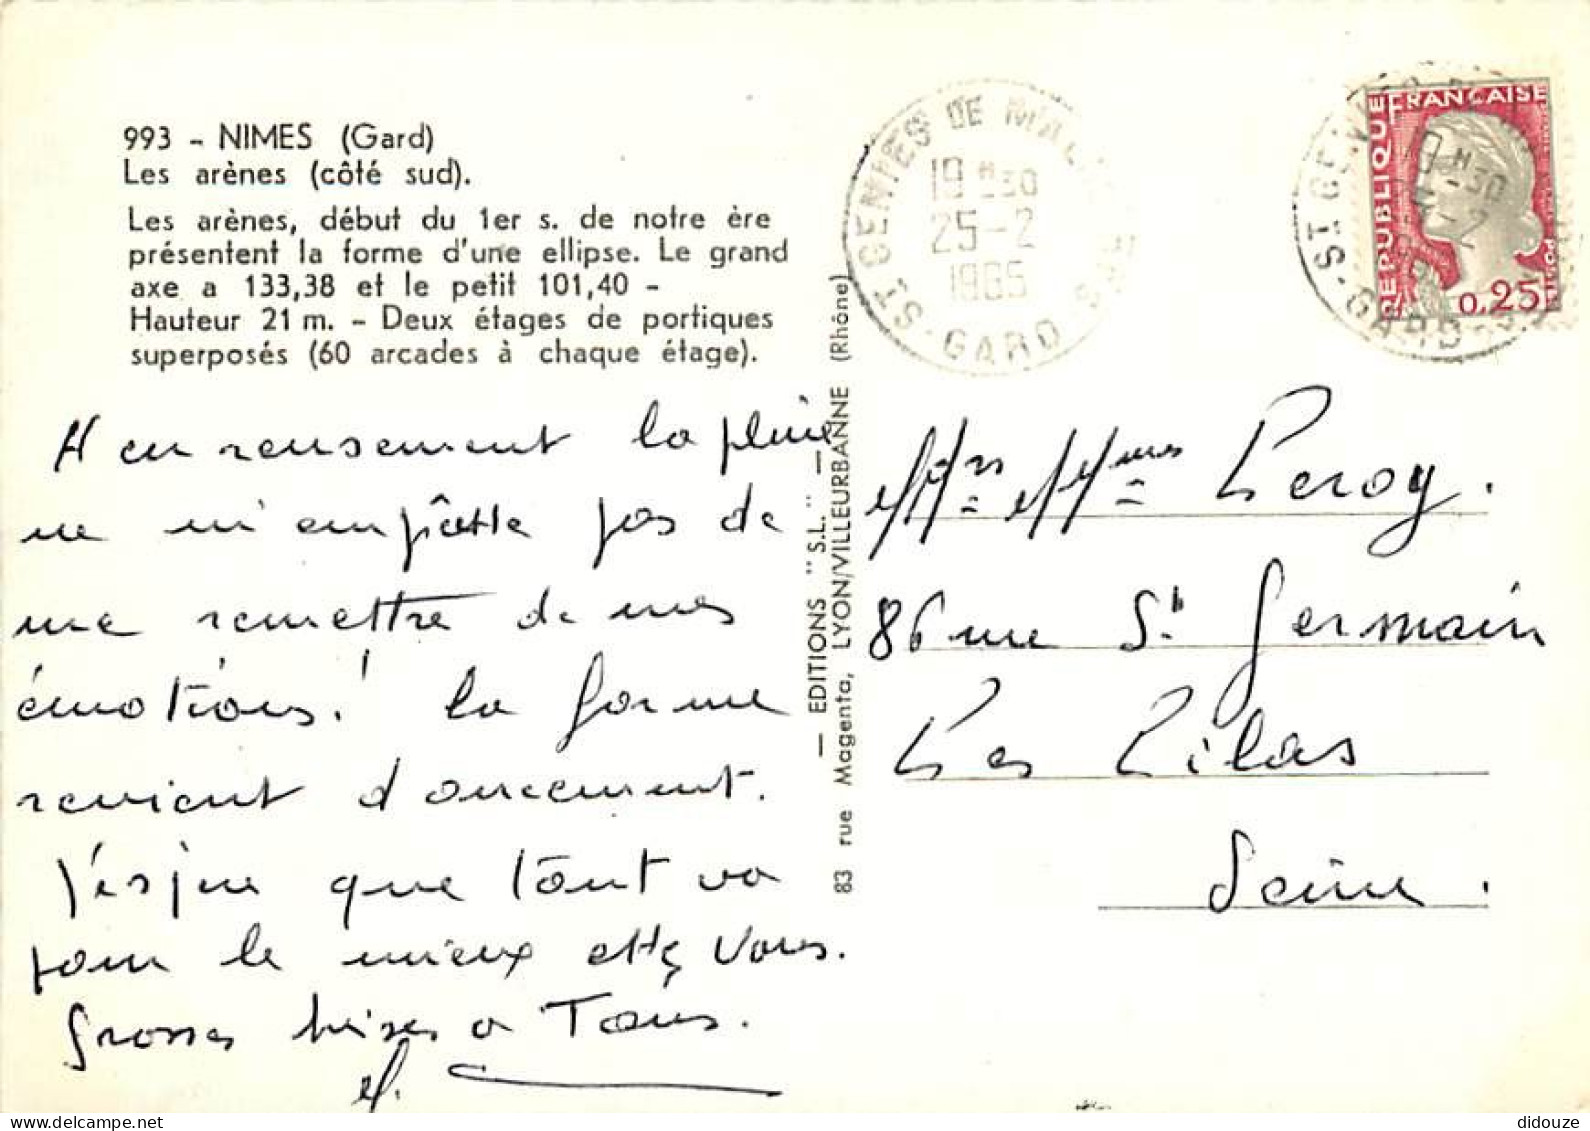 993 - NIMES (Gard)
Les arènes (côté sud).
Les arènes, début du 1er s. de notre ère
présentent la forme d'une ellipse. Le grand
axe a 133,38 et le petit 101,40 -
Hauteur 21 m. - Deux étages de portiques
superposés (60 arcades à chaque étage).
Heureusement la pluie
ne m'empêche pas de
me remettre de mes
émotions! la forme
revient doucement.
J'espère que tout va
pour le mieux chez vous.
Grosses bises à Tous.
— EDITIONS "S.L." —
83 rue Magenta, LYON/VILLEURBANNE (Rhône)
ST GENIES DE MALGOIRES
19 H 30
25-2
1965
GARD
REPUBLIQUE FRANÇAISE
0,25
ST GENIES DE
19 H 30
GARD
Mrs Mmes Leroy.
86 rue St Germain
Les Lilas
Seine.
didouze